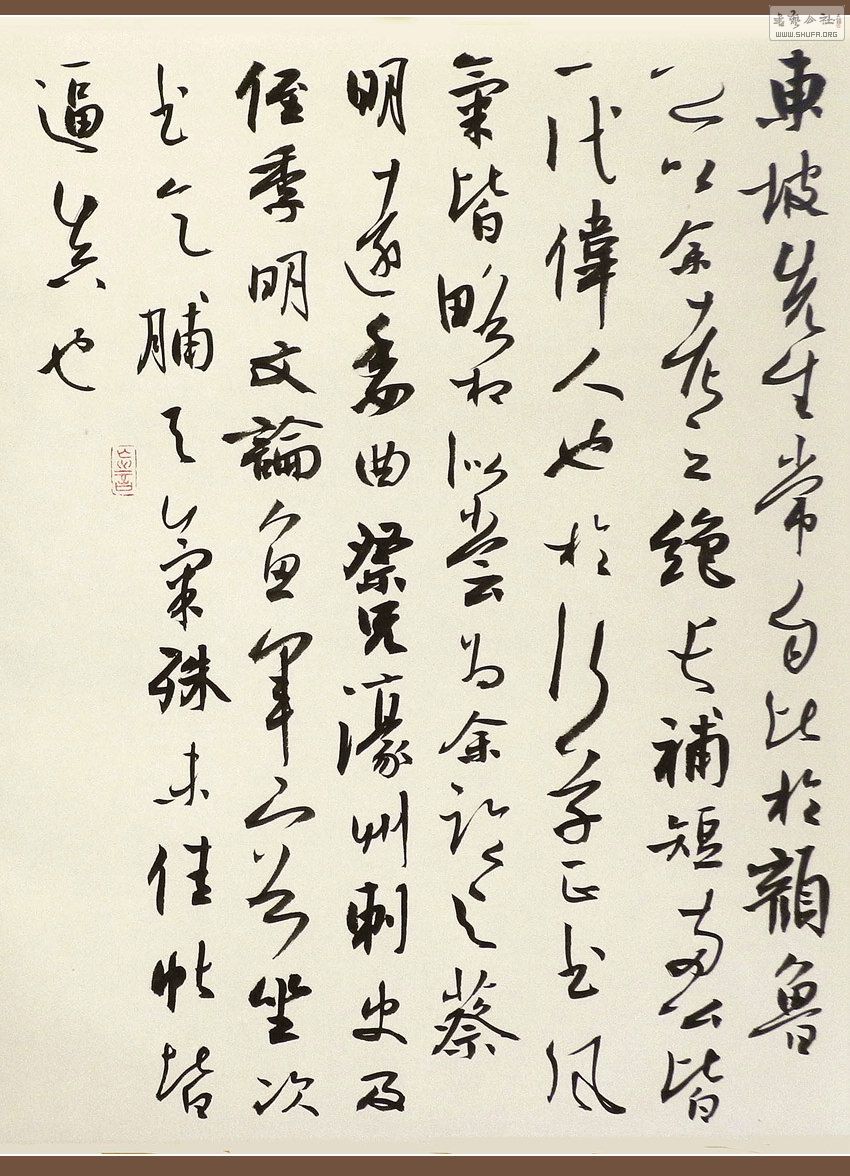 書藝公社
WWW.SHUFA.ORG
東坡先生常自比於顏魯
公以余考之絕長補短兩公皆
一代偉人也於行草正書風
氣皆略相似嘗為余臨之蔡
明遠委曲祭兄濠州刺史及
侄季明文論魚軍容坐次
書乞脯天氣殊未佳帖皆
逼真也